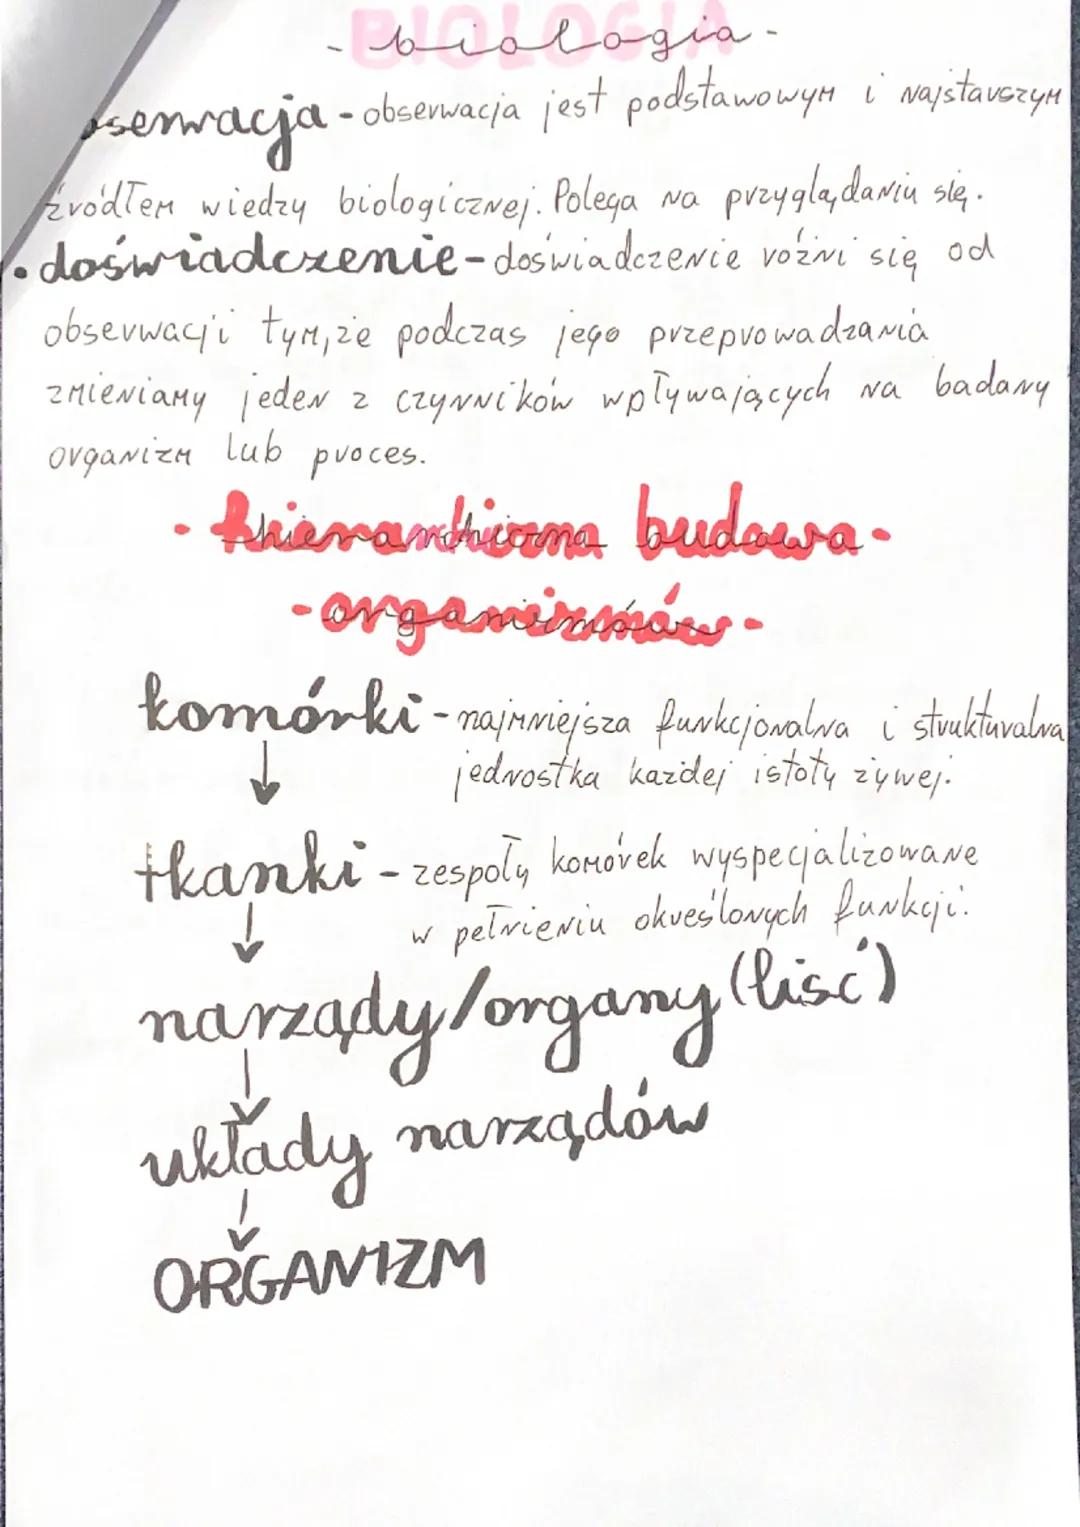 BIOLOGIA
- biologia -
obserwacja - obserwacja jest podstawowym i najstarszym
źródłem wiedzy biologicznej. Polega na przyglądaniu się.
• doświadczenie - doświadczenie różni się od
obserwacji tym, że podczas jego przeprowadzania
zmieniamy jeden z czynników wpływających na badany
organizm lub proces.
- hierarchiczna budowa -
- organizmów -
komórki - najmniejsza funkcjonalna i strukturalna
jednostka każdej istoty żywej.
tkanki - zespoły komórek wyspecjalizowane
w pełnieniu określonych funkcji.
narządy/organy (liść)
układy narządów
ORGANIZM